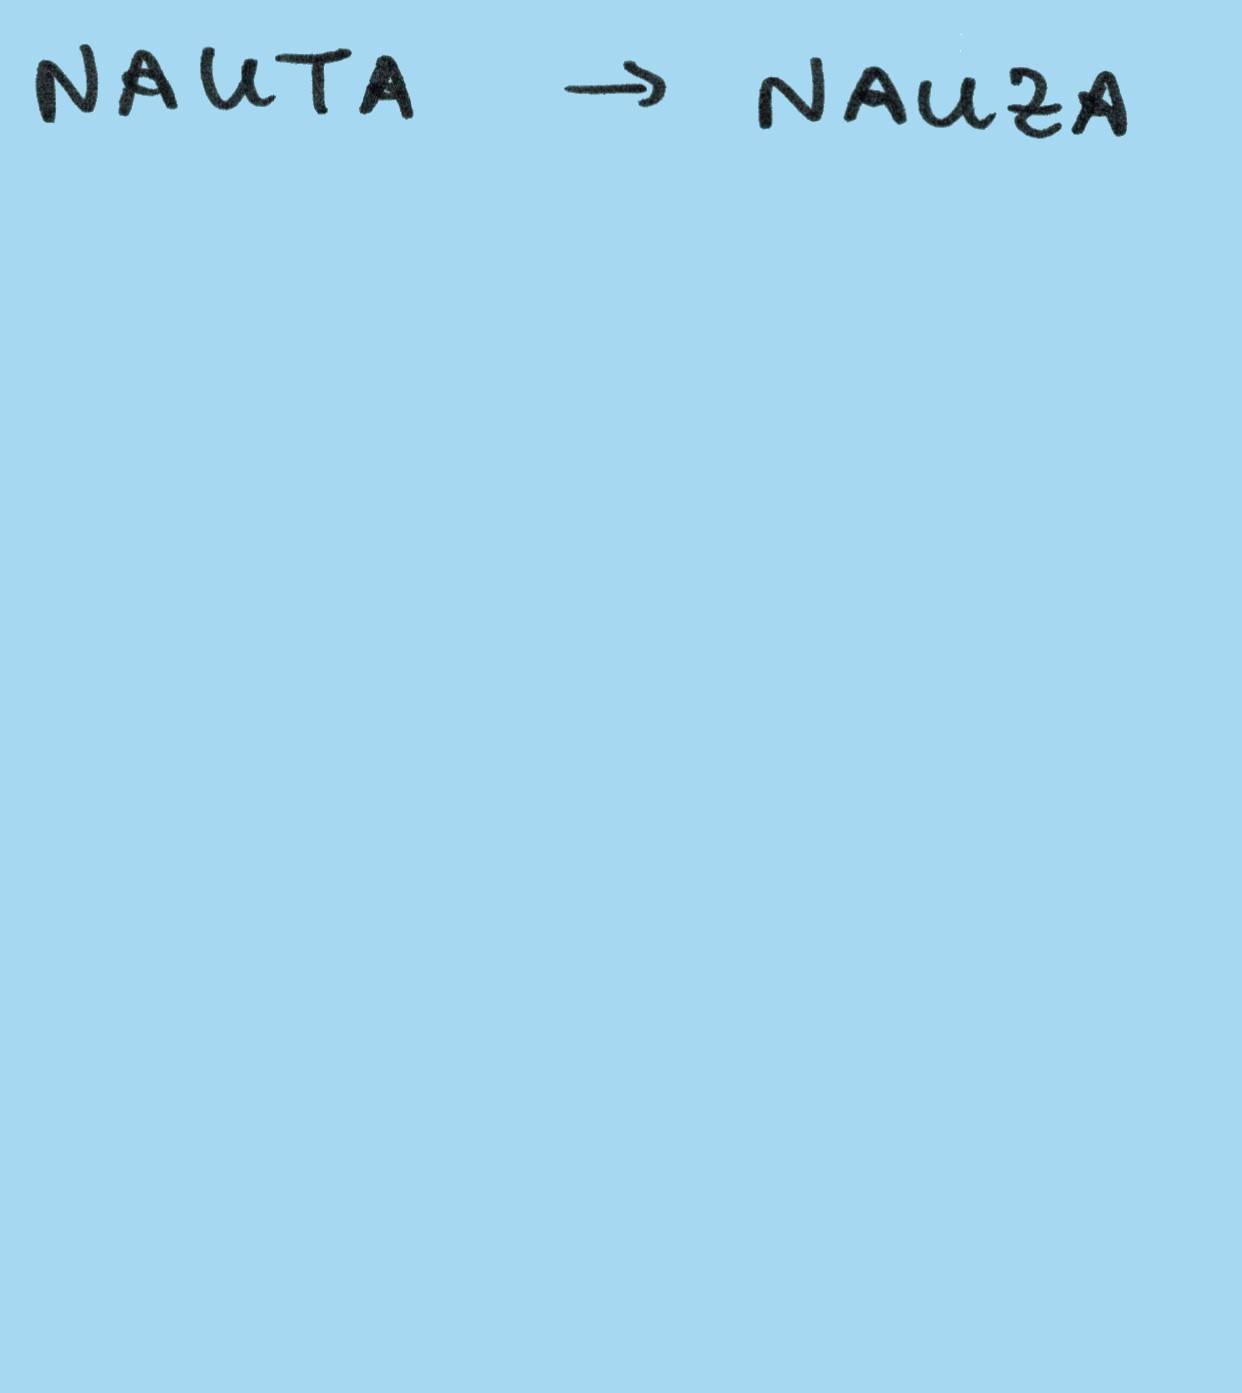 NAUTA → NAUZA